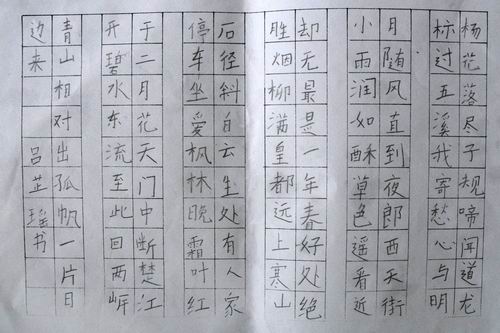 杨花落尽子规啼闻道龙
标过五溪我寄愁心与明
月随风直到夜郎西天街
小雨润如酥草色遥看近
却无最是一年春好处绝
胜烟柳满皇都远上寒山
石径斜白云生处有人家
停车坐爱枫林晚霜叶红
于二月花天门中断楚江
开碧水东流至此回两岸
青山相对出孤帆一片日
边来 吕芷瑶书